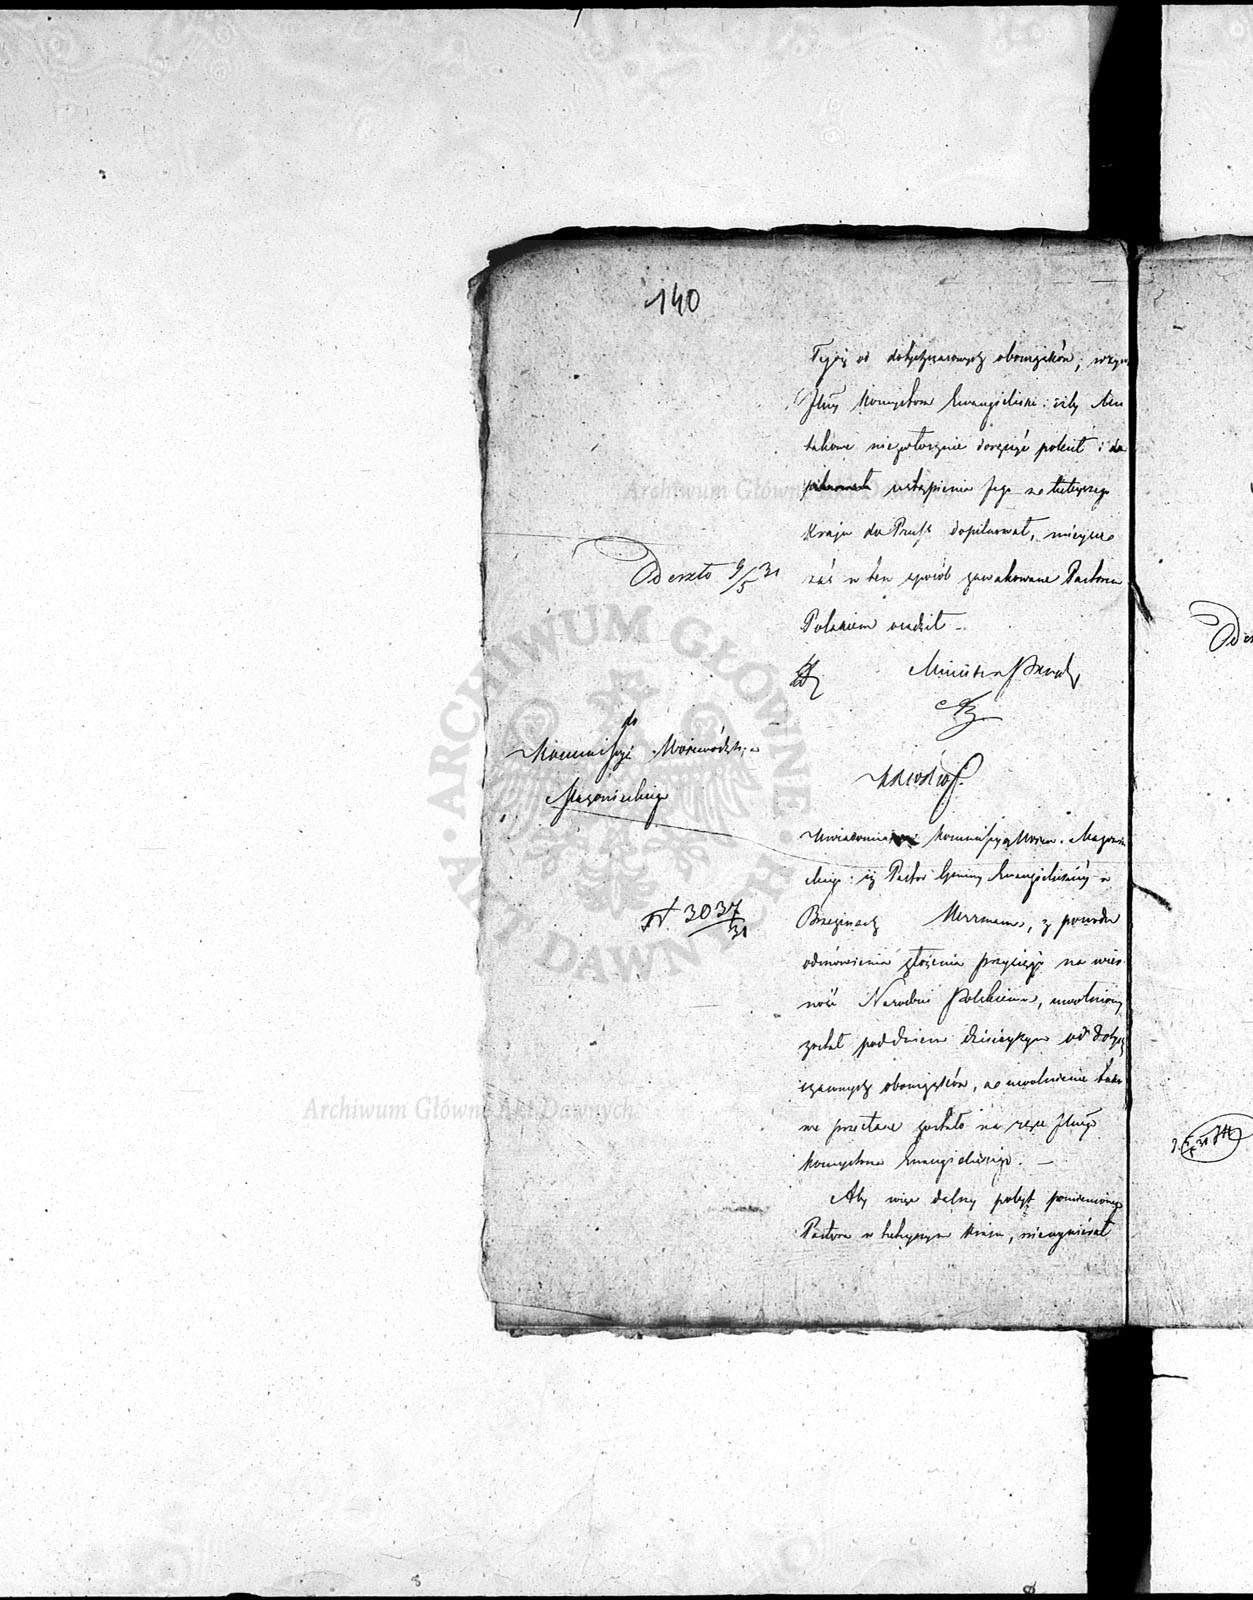 140
Tegoż od dotychczasowych obowiązków; wzywa
JXdza Konsystorz Ewangelicki: iżby
takowe niezwłocznie doręczyć polecił i do
ustąpienia Jego z tutejszego
Kraju do Pruss dopilnował, miejsce
zaś w ten sposób zawakowane Pastora
Polakiem osadził –
Odeszło 9/5 31
Minister Prezyd.
do
Kommissyi Województwa
Mazowieckiego
N. 3037/31
Uwiadamia Kommissyą Wojew. Mazowie
ckiego: iż Pastor Gminy Ewangelickiéj w
Brzezinach Herrmann, z powodu
odmówienia złożenia przysięgi na wier
ność Narodowi Polskiemu, uwolniony
został pod dniem dzisiejszym od dotych
czasowych obowiązków, a uwolnienie tako
we przesłane zostało na ręce
Konsystorza Ewangelickiego. –
Aby więc dalszy pobyt pomienionego
Pastora w tutejszym Kraju, niewyniósł
Archiwum Główne Akt Dawnych
ARCHIWUM GŁÓWNE AKT DAWNYCH
Archiwum Główne Akt Dawnych